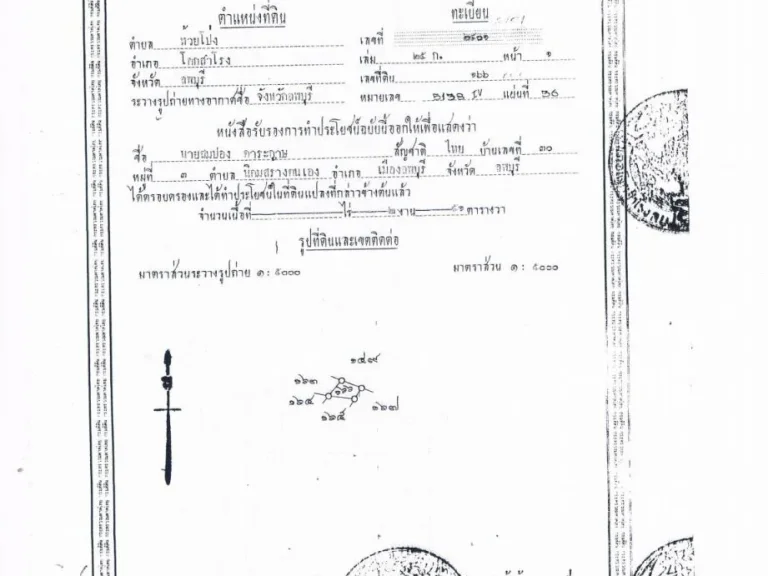 ตำแหน่งที่ดิน
ทะเบียน
ตำบล ห้วยโป่ง
เลขที่ ๒๙๐๑
อำเภอ โคกสำโรง
เล่ม ๒๙ ก. หน้า ๑
จังหวัด ลพบุรี
เลขที่ดิน ๑๖๖
ระวางรูปถ่ายทางอากาศชื่อ จังหวัดลพบุรี
หมายเลข ๕๑๓๘ IV แผ่นที่ ๓๖
หนังสือรับรองการทำประโยชน์ฉบับนี้ออกให้เพื่อแสดงว่า
ชื่อ นายสมปอง สัญชาติ ไทย บ้านเลขที่ ๓๐
หมู่ที่ ๓ ตำบล นิคมสร้างตนเอง อำเภอ เมืองลพบุรี จังหวัด ลพบุรี
ได้ครอบครองและได้ทำประโยชน์ในที่ดินแปลงที่กล่าวข้างต้นแล้ว
จำนวนเนื้อที่ ไร่ ๒ งาน ๕๑ ตารางวา
รูปที่ดินและเขตติดต่อ
มาตราส่วนระวางรูปถ่าย ๑ : ๕๐๐๐
มาตราส่วน ๑ : ๕๐๐๐
๑๕๙
๑๖๓
๑๖๔
๑๖๗
๑๖๕